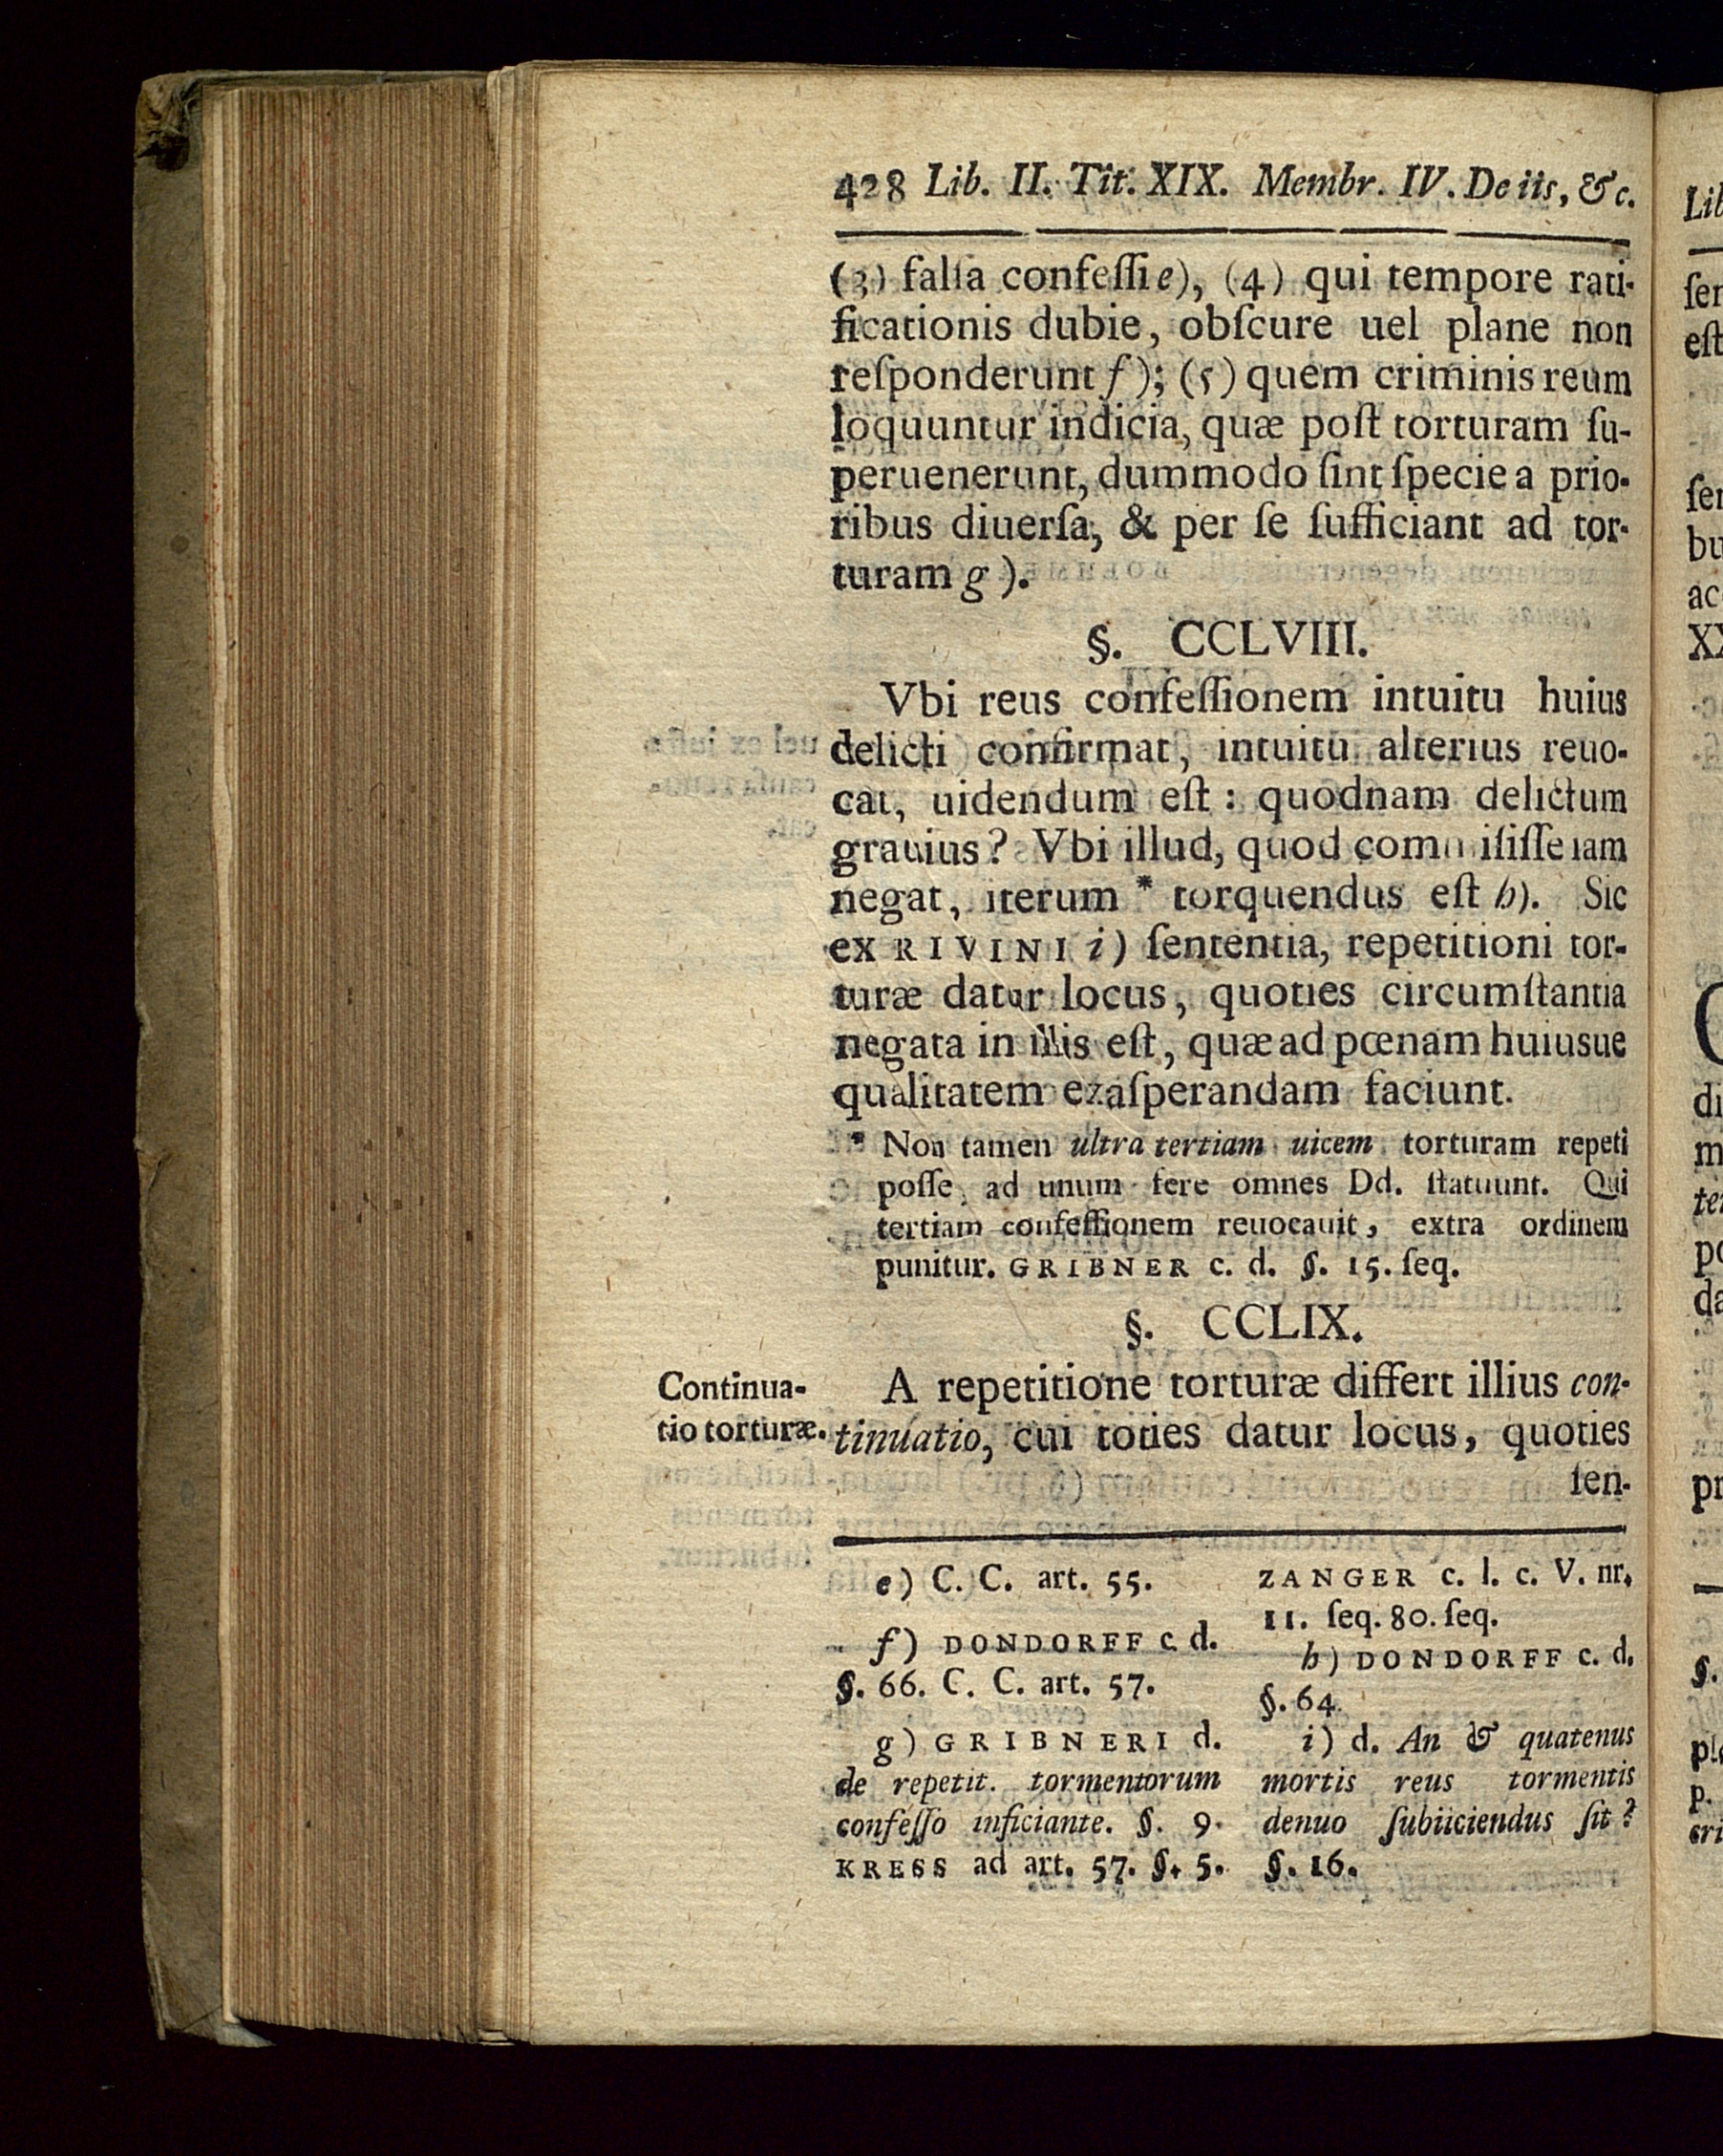 428 Lib. II. Tit. XIX. Membr. IV. De iis, &c.
(3) falſa confeſſi e), (4) qui tempore rati-
ficationis dubie, obſcure uel plane non
reſponderunt f); (5) quem criminis reum
loquuntur indicia, quæ poſt torturam ſu-
peruenerunt, dummodo ſint ſpecie a prio-
ribus diuerſa, & per ſe ſufficiant ad tor-
turam g).
§. CCLVIII.
Vbi reus confeſſionem intuitu huius
delicti confirmat, intuitu alterius reuo-
cat, uidendum eſt: quodnam delictum
grauius? Vbi illud, quod commiſiſſe iam
negat, iterum * torquendus eſt h). Sic
ex RIVINI i) ſententia, repetitioni tor-
turæ datur locus, quoties circumſtantia
negata in illis eſt, quæ ad pœnam huiusue
qualitatem exaſperandam faciunt.
* Non tamen ultra tertiam uicem torturam repeti
poſſe, ad unum fere omnes Dd. ſtatuunt. Qui
tertiam confeſſionem reuocauit, extra ordinem
punitur. GRIBNER c. d. §. 15. ſeq.
§. CCLIX.
Continua-
tio torturæ.
A repetitione torturæ differt illius con-
tinuatio, cui toties datur locus, quoties
ſen-
e) C. C. art. 55.
f) DONDORFF c. d.
§. 66. C. C. art. 57.
g) GRIBNERI d.
de repetit. tormentorum
confeſſo inficiante. §. 9.
KRESS ad art. 57. §. 5.
ZANGER c. l. c. V. nr.
11. ſeq. 80. ſeq.
h) DONDORFF c. d.
§. 64.
i) d. An & quatenus
mortis reus tormentis
denuo ſubiiciendus ſit?
§. 16.